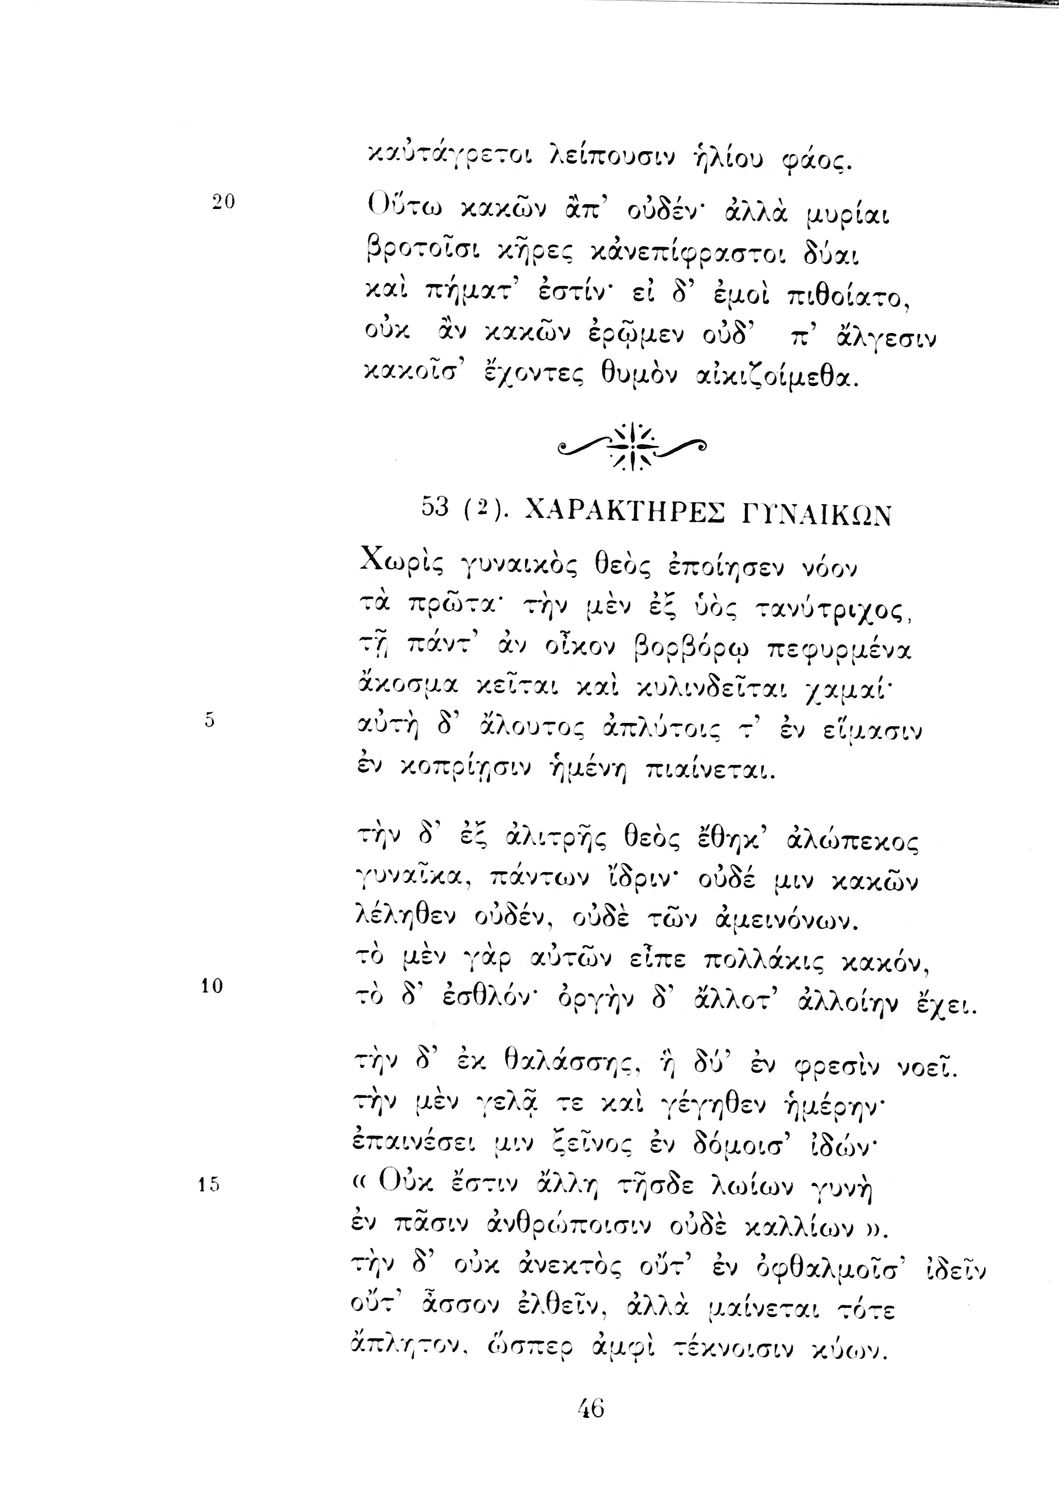 καὐτάγρετοι λείπουσιν ἡλίου φάος.
20 Οὕτω κακῶν ἂπ’ οὐδέν· ἀλλὰ μυρίαι
βροτοῖσι κῆρες κἀνεπίφραστοι δύαι
καὶ πήματ’ ἐστίν· εἰ δ’ ἐμοὶ πιθοίατο,
οὐκ ἂν κακῶν ἐρῷμεν οὐδ’ π’ ἄλγεσιν
κακοῖσ’ ἔχοντες θυμὸν αἰκιζοίμεθα.
53 (2). ΧΑΡΑΚΤΗΡΕΣ ΓΥΝΑΙΚΩΝ
Χωρὶς γυναικὸς θεὸς ἐποίησεν νόον
τὰ πρῶτα· τὴν μὲν ἐξ ὑὸς τανύτριχος,
τῇ πάντ’ ἀν οἶκον βορβόρῳ πεφυρμένα
ἄκοσμα κεῖται καὶ κυλινδεῖται χαμαί·
5 αὐτὴ δ’ ἄλουτος ἀπλύτοις τ’ ἐν εἵμασιν
ἐν κοπρίῃσιν ἡμένη πιαίνεται.
τὴν δ’ ἐξ ἀλιτρῆς θεὸς ἔθηκ’ ἀλώπεκος
γυναῖκα, πάντων ἴδριν· οὐδέ μιν κακῶν
λέληθεν οὐδέν, οὐδὲ τῶν ἀμεινόνων.
τὸ μὲν γὰρ αὐτῶν εἶπε πολλάκις κακόν,
10 τὸ δ’ ἐσθλόν· ὀργὴν δ’ ἄλλοτ’ ἀλλοίην ἔχει.
τὴν δ’ ἐκ θαλάσσης, ἣ δύ’ ἐν φρεσὶν νοεῖ.
τὴν μὲν γελᾷ τε καὶ γέγηθεν ἡμέρην·
ἐπαινέσει μιν ξεῖνος ἐν δόμοισ’ ἰδών·
15 « Οὐκ ἔστιν ἄλλη τῆσδε λωίων γυνὴ
ἐν πᾶσιν ἀνθρώποισιν οὐδὲ καλλίων ».
τὴν δ’ οὐκ ἀνεκτὸς οὔτ’ ἐν ὀφθαλμοῖσ’ ἰδεῖν
οὔτ’ ἆσσον ἐλθεῖν, ἀλλὰ μαίνεται τότε
ἄπλητον, ὥσπερ ἀμφὶ τέκνοισιν κύων.
46